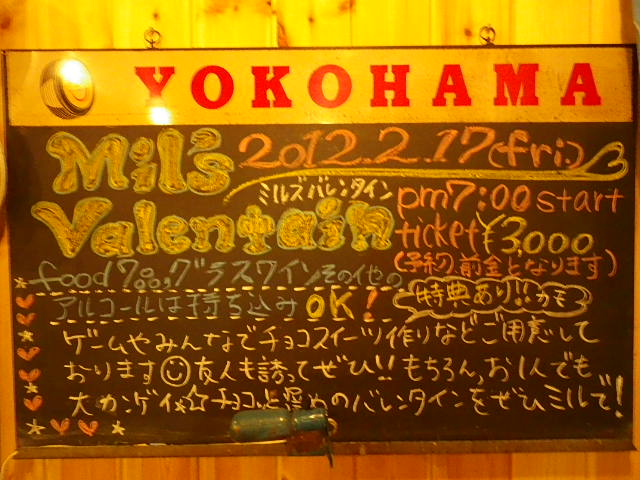 YOKOHAMA
Mil's Valentain
2012.2.17(fri.)
ミルズバレンタイン
pm7:00 start
ticket ¥3,000
(予約前金となります)
food 7品,グラスワインその他の
アルコールは持ち込みOK!
特典あり!!かも
ゲームやみんなでチョコスイーツ作りなどご用意して
おります☺友人も誘ってぜひ!!もちろん、お1人でも
大カンゲイ☆チョコと深めのバレンタインをぜひミルで!